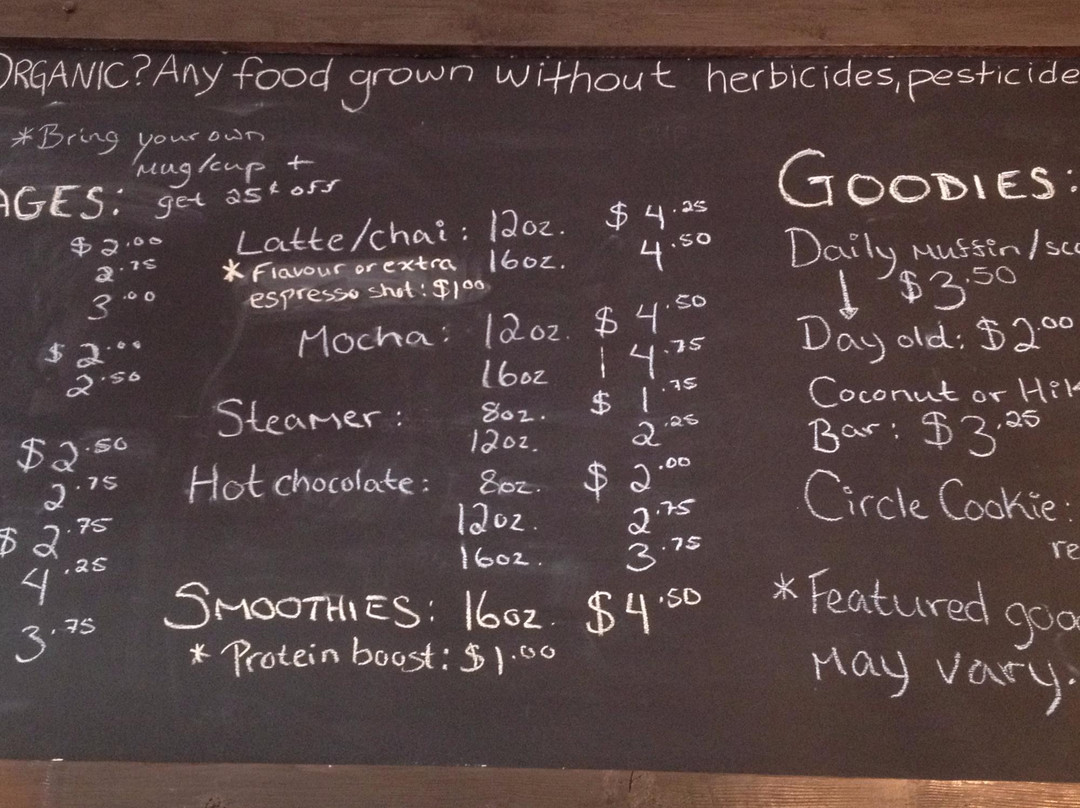 ORGANIC? Any food grown without herbicides, pesticide
*Bring your own
mug/cup +
get 25¢ off
AGES:
$2.00
2.75
3.00
$2.00
2.50
$2.50
2.75
$2.75
4.25
3.75
Latte/chai: 12oz. $4.25
16oz. 4.50
* Flavour or extra
espresso shot: $1.00
Mocha: 12oz. $4.50
16oz 4.75
Steamer: 8oz. $1.75
12oz. 2.25
Hot chocolate: 8oz. $2.00
12oz. 2.75
16oz. 3.75
SMOOTHIES: 16oz. $4.50
* Protein boost: $1.00
GOODIES:
Daily Muffin/sco
↓ $3.50
Day old: $2.00
Coconut or Hik
Bar: $3.25
Circle Cookie:
re
*Featured goo
May vary.